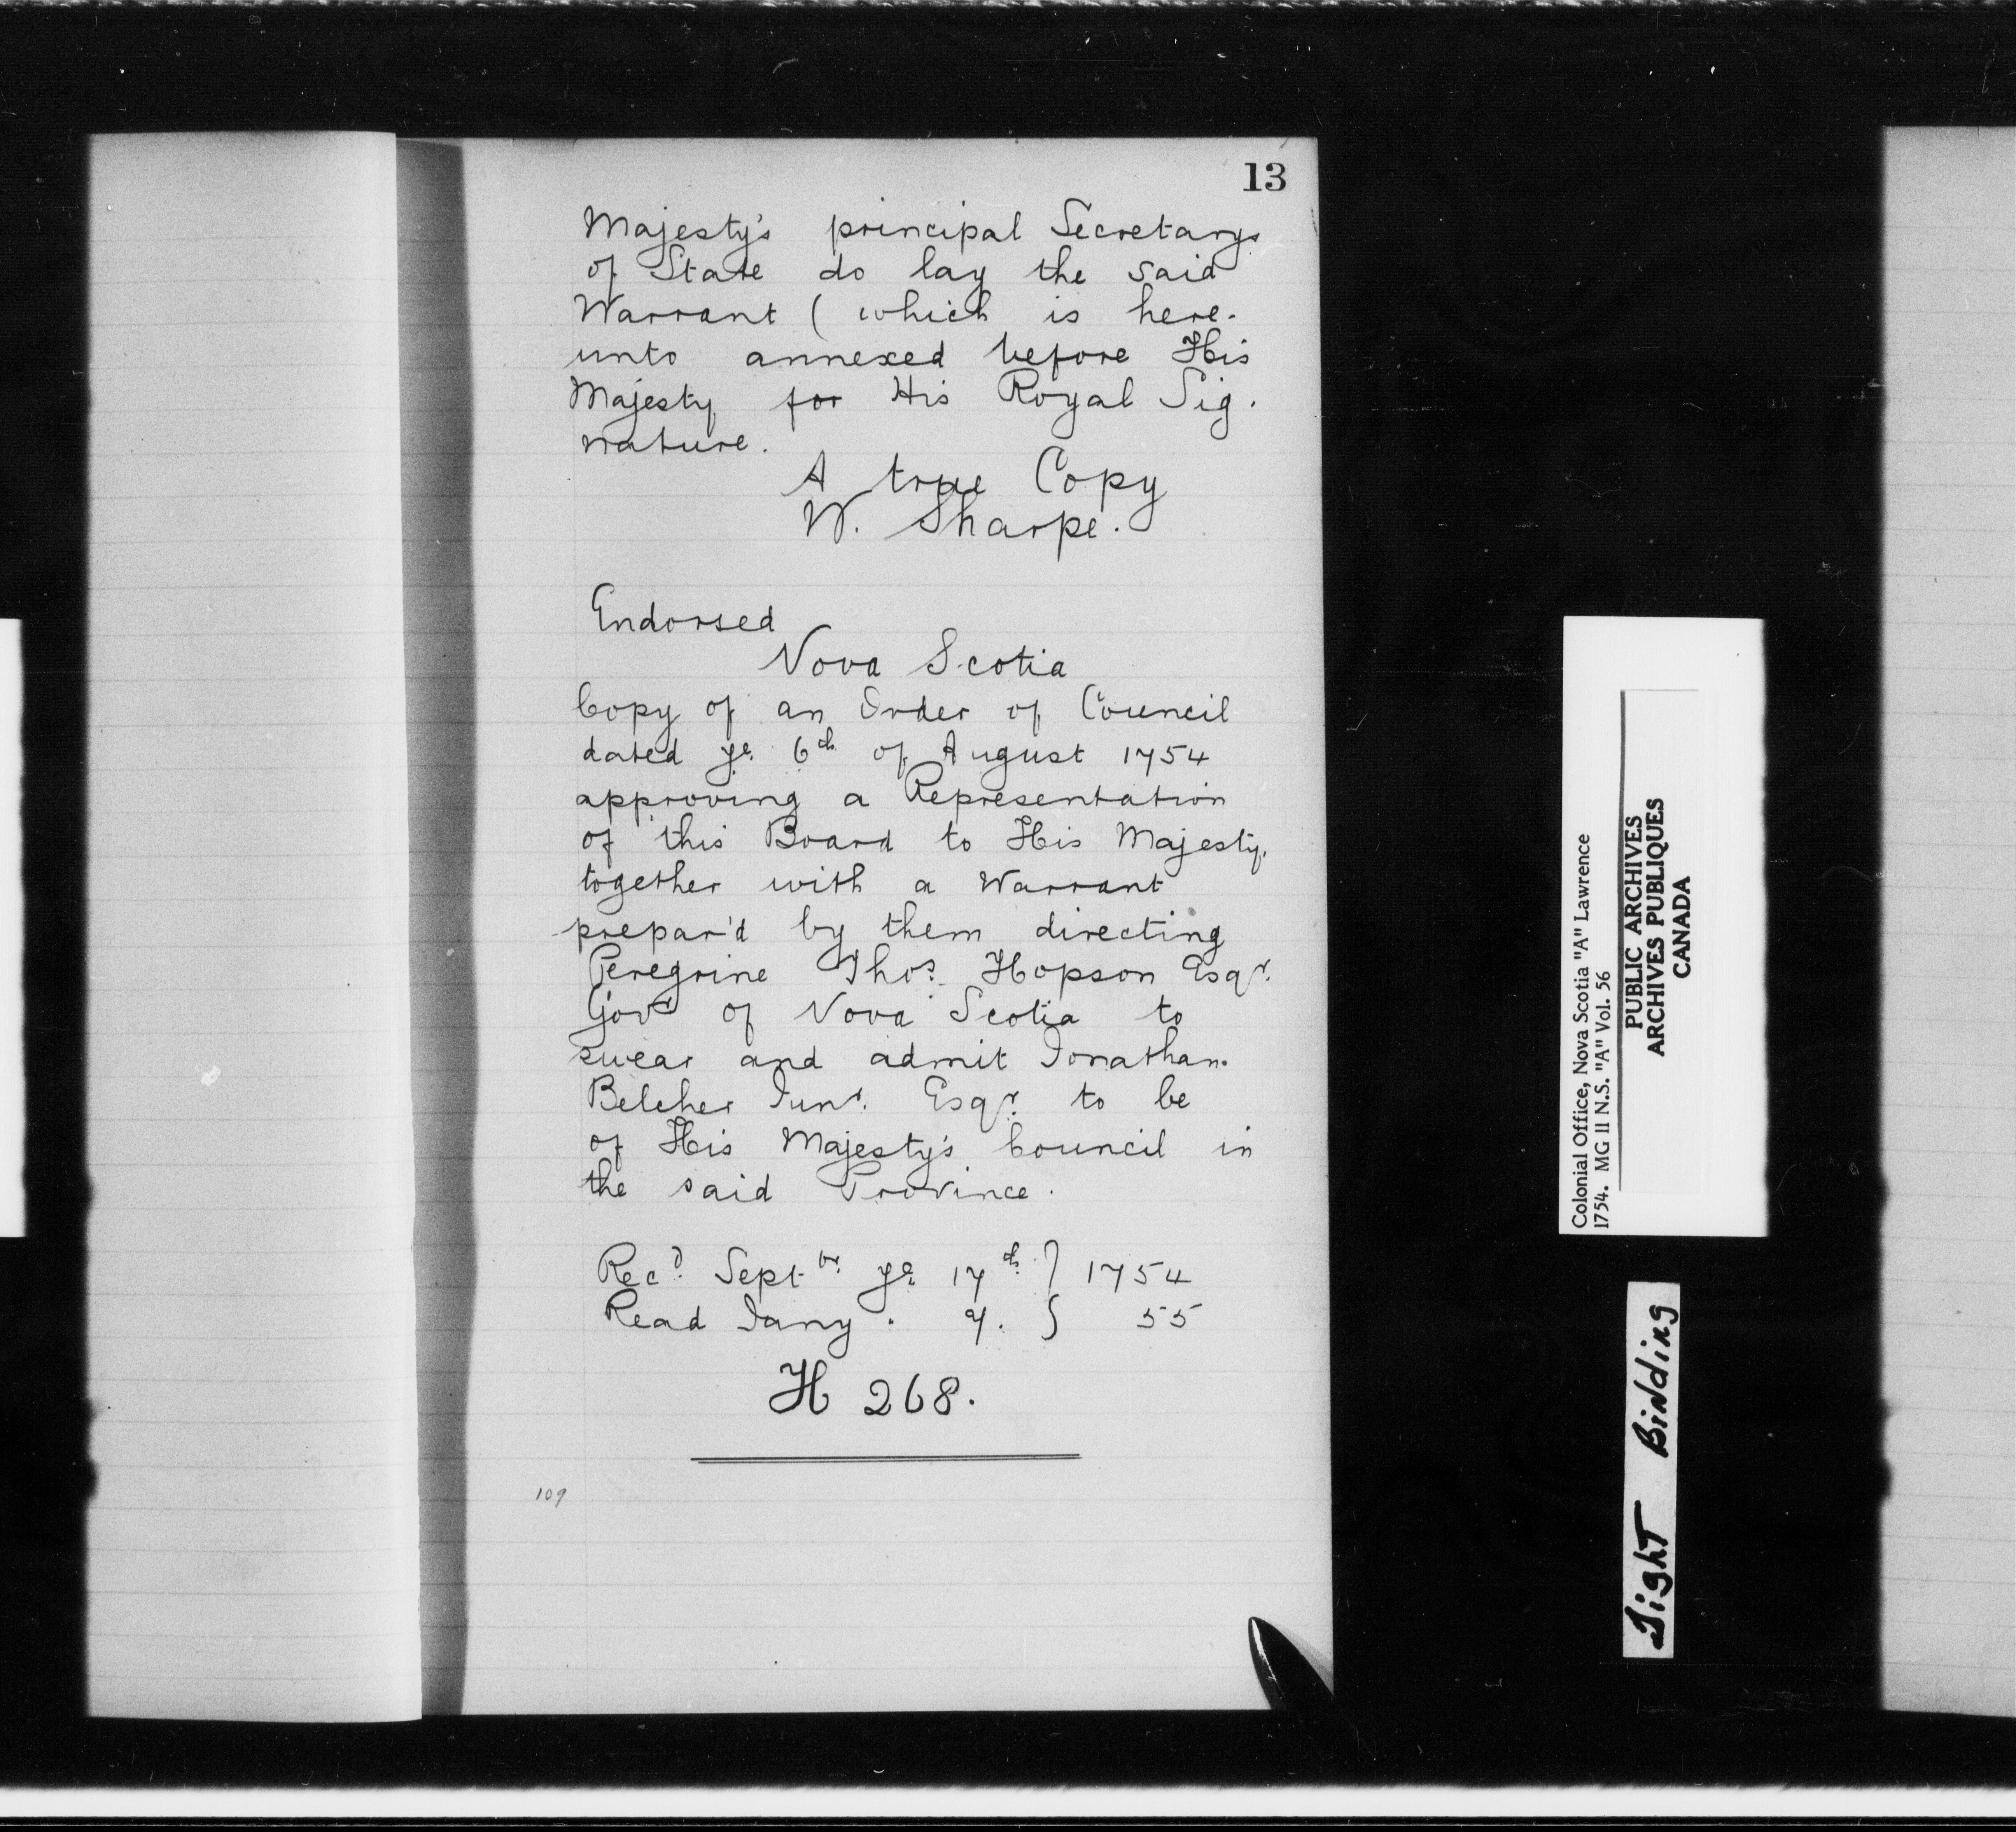 13
Majesty's principal Secretarys
of State do lay the said
Warrant ( which is here-
unto annexed before His
Majesty for His Royal Sig-
nature.
A true Copy
W. Sharpe.
Endorsed
Nova Scotia
Copy of an Order of Council
dated ye. 6th of August 1754
approving a Representation
of this Board to His Majesty,
together with a Warrant
prepar'd by them directing
Peregrine Thos. Hopson Esqr.
Govr of Nova Scotia to
swear and admit Jonathan
Belcher Junr. Esqr. to be
of His Majesty's Council in
the said Province.
Recd. Septbr. ye. 17th. } 1754
Read Jany. 9. } 55
H 268.
109
Colonial Office, Nova Scotia "A" Lawrence
1754. MG 11 N.S. "A" Vol. 56
PUBLIC ARCHIVES
ARCHIVES PUBLIQUES
CANADA
Tight Binding